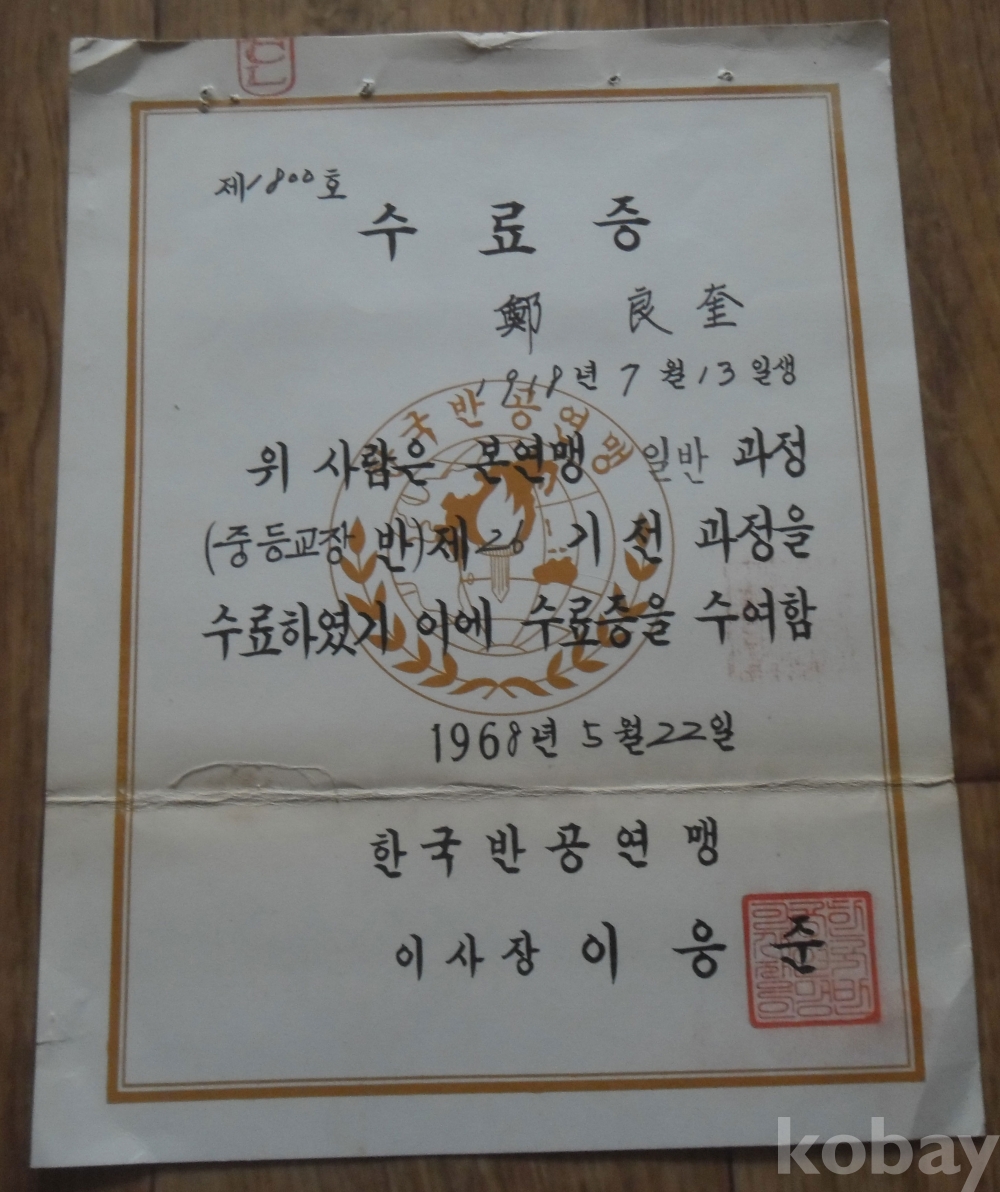 제1800호
수 료 증
鄭 良 奎
1918년 7월 13일생
국반공연맹
위 사람은 본연맹 일반 과정
(중등교장 반)제26기 전 과정을
수료하였기 이에 수료증을 수여함
1968년 5월 22일
한국반공연맹
이사장 이 응 준
kobay